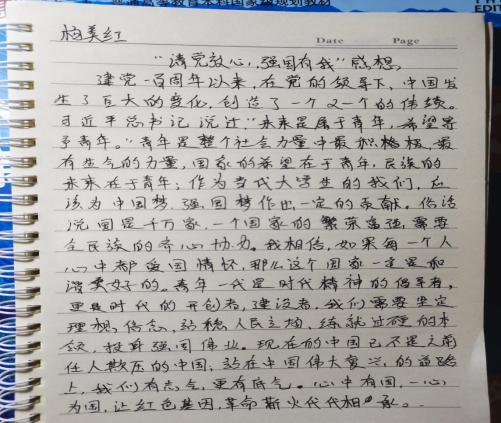 普通高等教育本科国家级规划教材
杨美红
Date Page
“请党放心，强国有我”感想
建党一百周年以来，在党的领导下，中国发
生了巨大的变化，创造了一个又一个的伟绩。
习近平总书记说过“未来是属于青年，希望寄
予青年。”青年是整个社会力量中最积极、最
有生气的力量，国家的希望在于青年，民族的
未来在于青年；作为当代大学生的我们，应
该为中国梦，强国梦作出一定的贡献。俗话
说国是千万家，一个国家的繁荣富强，需要
全民族的齐心协力。我相信，如果每一个人
心中都爱国情怀，那么这个国家一定是和
谐美好的。青年一代是时代精神的倡导者，
更是时代的开创者，建设者，我们需要坚定
理想信念，站稳人民立场，练就过硬的本
领，投身强国伟业。现在的中国已不是之前
任人欺压的中国，站在中国伟大复兴的道路
上，我们有志气，更有底气。心中有国，一心
为国，让红色基因，革命薪火代代相承。